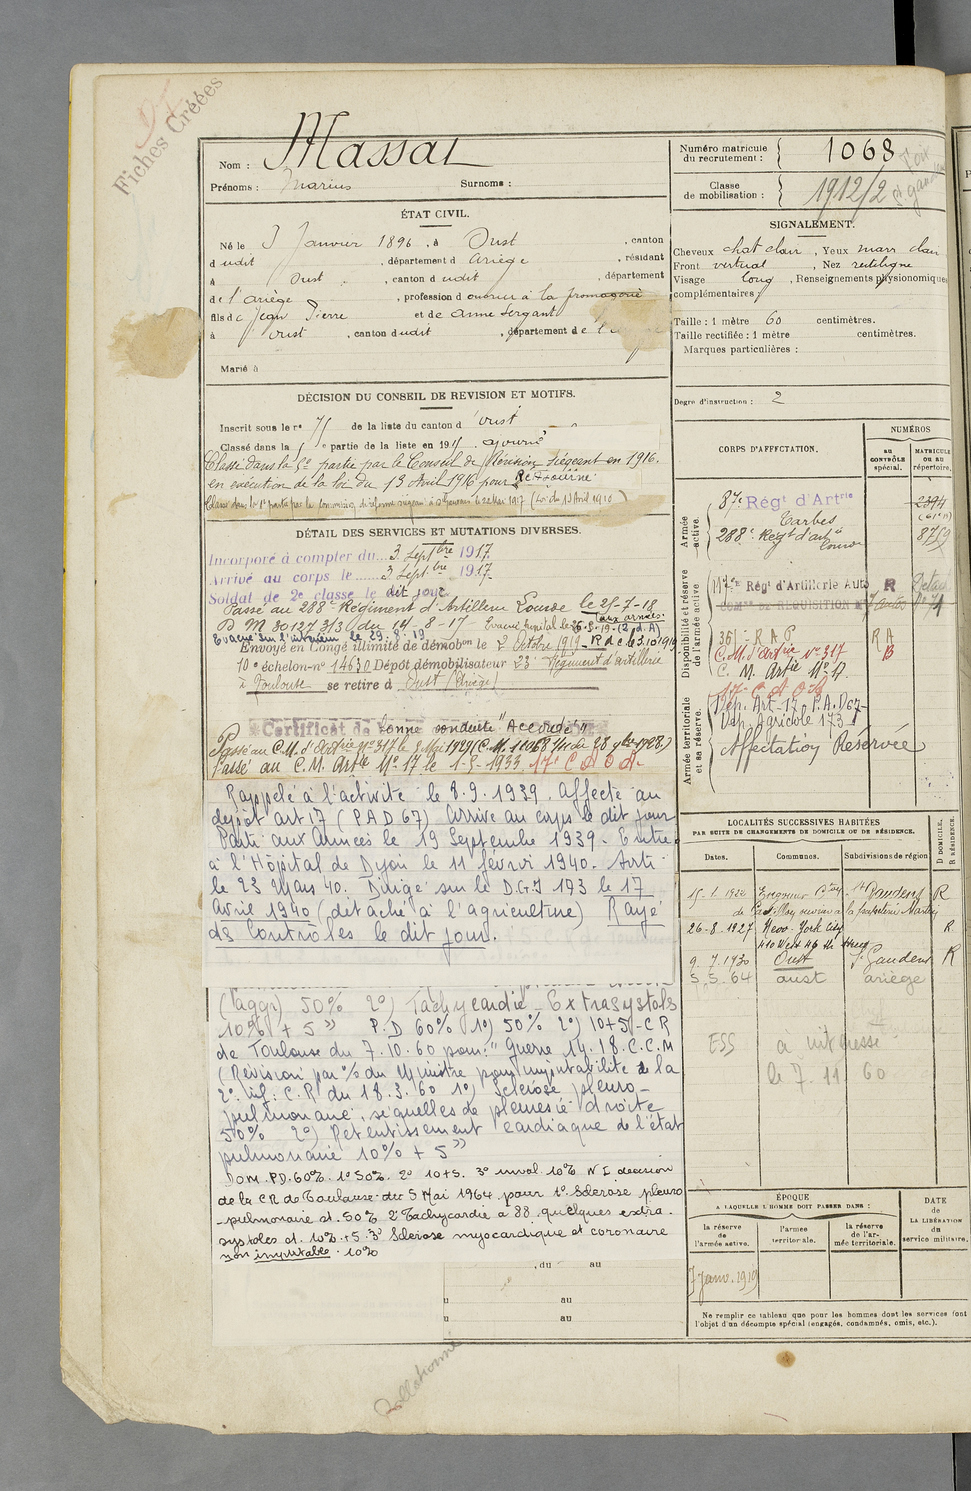 Fiches Créées
Nom : Massat
Prénoms : Marius Surnoms :
Numéro matricule du recrutement : 1068
Classe de mobilisation : 1912/2
ÉTAT CIVIL.
Né le 3 Janvier 1896, à Oust, canton
dudit, département d Ariège, résidant
à Oust, canton dudit, département
de l'ariège, profession d ouvrier à la fromagerie
fils de Jean Pierre et de Anne Sergant
à Oust, canton dudit, département de l'
Marié à
SIGNALEMENT.
Cheveux chat clair, Yeux marr clair
Front vertical, Nez rectiligne
Visage long, Renseignements physionomiques
complémentaires
Taille : 1 mètre 60 centimètres.
Taille rectifiée : 1 mètre centimètres.
Marques particulières :
Degré d'instruction : 2
DÉCISION DU CONSEIL DE REVISION ET MOTIFS.
Inscrit sous le n° de la liste du canton d'oust
Classé dans la 5e partie de la liste en 191 . ajourné
Classé dans la 5e partie par le Conseil de Révision siégeant en 1916.
en exécution de la loi du 13 Avril 1916 pour
DÉTAIL DES SERVICES ET MUTATIONS DIVERSES.
Incorporé à compter du 3 Septbre 1917
Arrivé au corps le 3 Septbre 1917
Soldat de 2e classe le dit jour
Passé au 288e Régiment d'Artillerie Lourde le 25-7-18
Evacué sur l'intérieur le 29.8.19
Envoyé en Congé illimité de démobon le 2 Octobre 1919
10e échelon-n° 14630 Dépôt démobilisateur 23e Régiment d'artillerie
à Toulouse se retire à Oust (Ariège)
Certificat de bonne conduite "Accordé"
Passé au C.M. d'Artrie n° 317 le 8 Mai 1929 (C.M. 11068
Passé au C.M. Artie N° 17 le 1-5-1933 17e C A O A
Rappelé à l'activité le 8.9.1939. Affecté au
dépôt art 17 (P A D 67) Arrivé au corps le dit jour
Parti aux Armées le 19 Septembre 1939. Entré
à l'Hôpital de Dijon le 11 févri 1940. Sorti
le 23 Mars 40. Dirigé sur le D.G.I 173 le 17
Avril 1940 (détaché à l'agriculture) Rayé
des Contrôles le dit jour.
(l'aggr) 50% 2°) Tachycardie - Extrasystols
10% + 5" P.D 60% 1°) 50% 2°) 10+5 - C R
de Toulouse du 7.10.60 pour : "Guerre 14.18. C.C.M
(Revision par % du Ministre pour imputabilité à la
2° inf : C.R du 18.3.60 1°) Sclérose pleuro-
pulmonaire, séquelles de pleuresie droite
50% 2°) Retentissement cardiaque de l'état
pulmonaire 10% + 5"
DOM. PD. 60%. 1° 50%. 2° 10+5. 3° inval. 10% N I décision
de la CR de Toulouse du 5 Mai 1964 pour 1° Sclérose pleuro
-pulmonaire d. 50% 2° Tachycardie à 88 quelques extra.
systoles d. 10% +5 3° Sclérose myocardique et coronaire
non imputable. 10%
, du au
u au
u au
CORPS D'AFFECTATION.
NUMÉROS
au CONTRÔLE spécial.
MATRICULE OU AU répertoire.
Armée active.
87e Régt d'Artrie 2394
Tarbes
288e Régt d'art Lourde 8759
Disponibilité et réserve de l'armée active.
Régt d'Artillerie Auto R
36e R A P R A
C.M. d'Artrie N° 317 B
C. M. Artie N° 17.
Armée territoriale et sa réserve.
17e C A O A
Dép. Art. 17 P.A.D 67
Dép. Agricole 173
Affectation Réservée
LOCALITÉS SUCCESSIVES HABITÉES
PAR SUITE DE CHANGEMENTS DE DOMICILE OU DE RÉSIDENCE.
D DOMICILE, R RÉSIDENCE.
Dates. Communes. Subdivisions de région
15-1-1922 St Gaudens R
26-8-1927 New-York City R
410 West 46 th Street
9.7.1930 Oust St Gaudens R
5.5.64 oust ariège
ESS à intéressé
le 7.11 60
ÉPOQUE
A LAQUELLE L'HOMME DOIT PASSER DANS :
la réserve de l'armée active.
l'armée territoriale.
la réserve de l'armée territoriale.
DATE DE LA LIBÉRATION du service militaire.
Janv. 1919
Ne remplir ce tableau que pour les hommes dont les services font
l'objet d'un décompte spécial (engagés, condamnés, omis, etc.).